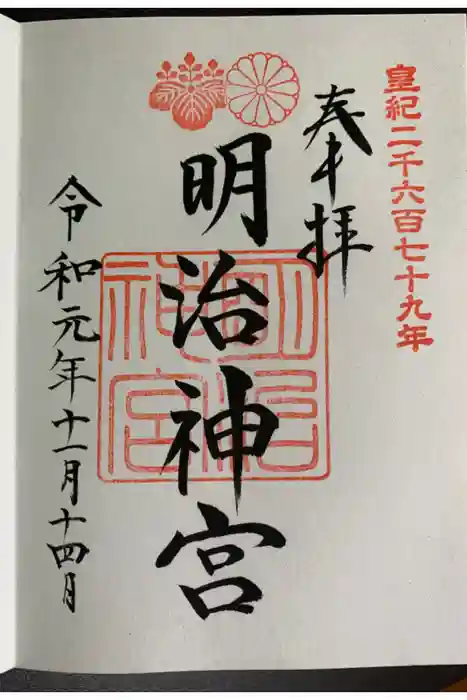 皇紀二千六百七十九年
奉拝
明治神宮
明治
神宮
令和元年十一月十四日